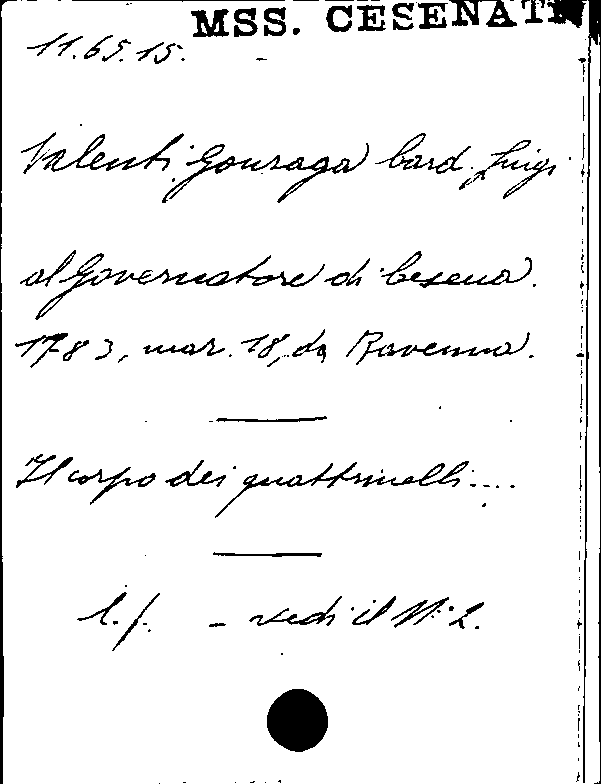 MSS. CESENATI
11.65.15.
Valenti Gonzaga Card. Luigi
al Governatore di Cesena.
1783, mar. 18, da Ravenna.
Il corpo dei quattrinelli....
l. f. - vedi il N: 2.